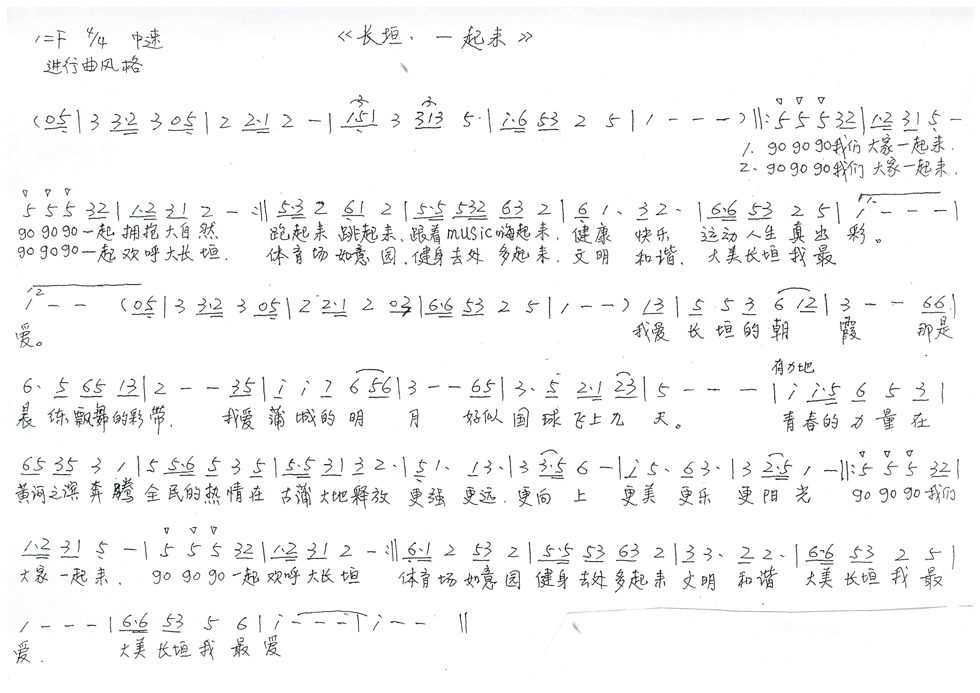 1=F 4/4 中速 《长垣·一起来》
进行曲风格
(05|3 32 305|2 2·1 2 -|151 3 313 5·|i·6 53 2 5|1 - - -)||:5 5 5 32|1·2 31 5 -
1. go go go我们大家一起来.
2. go go go我们大家一起来.
5 5 5 32|1·2 31 2 - :||5·3 2 61 2|5·5 532 63 2|6 1· 32·|6·6 53 2 5|1 - - -|
go go go一起 拥抱大自然 跑起来 跳起来, 跟着music嗨起来, 健康 快乐 运动人生真出彩。
go go go一起 欢呼大长垣. 体育场如意园,健身去处多起来,文明 和谐, 大美长垣我最
1 - - (05|3 3·2 3 05|2 2·1 2 03|6·6 53 2 5|1 - -) 13|5 5 3 6 12|3 - - 66|
爱。 我爱 长垣的朝 霞 那是
6· 5 65 13|2 - - 35|i i 7 6 56|3 - - 65|3· 5 2·1 23|5 - - -|i i·5 6 5 3|
有力地
晨练飘舞的彩带, 我爱 蒲城的明 月 好似国球飞上九 天。 青春的力量在
65 35 3 1|5 5·6 5 3 5|5·5 31 32·|5 1· 13·|3 3·5 6 -|i 5· 63·|3 2·5 1 -||:5 5 5 32|
黄河之滨奔腾 全民的热情在 古蒲大地释放 更强 更远, 更向 上 更美 更乐 更阳光 go go go我们
1·2 31 5 -|5 5 5 32|1·2 31 2 - :||6·1 2 53 2|5·5 53 63 2|3 3· 2 2·|6·6 53 2 5|
大家一起来, go go go一起欢呼大长垣 体育场如意园 健身去处多起来 文明 和谐 大美长垣我最
1 - - -|6·6 53 5 6|i - - -|i - - ||
爱. 大美长垣我最爱